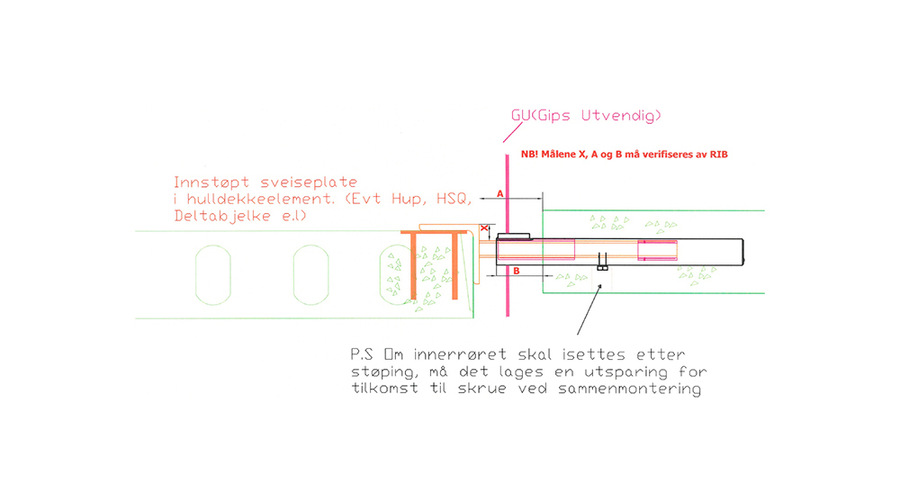 GU(Gips Utvendig)
NB! Målene X, A og B må verifiseres av RIB
Innstøpt sveiseplate
i hulldekkeelement. (Evt Hup, HSQ,
Deltabjelke e.l)
A
X
B
P.S Om innerrøret skal isettes etter
støping, må det lages en utsparing for
tilkomst til skrue ved sammenmontering